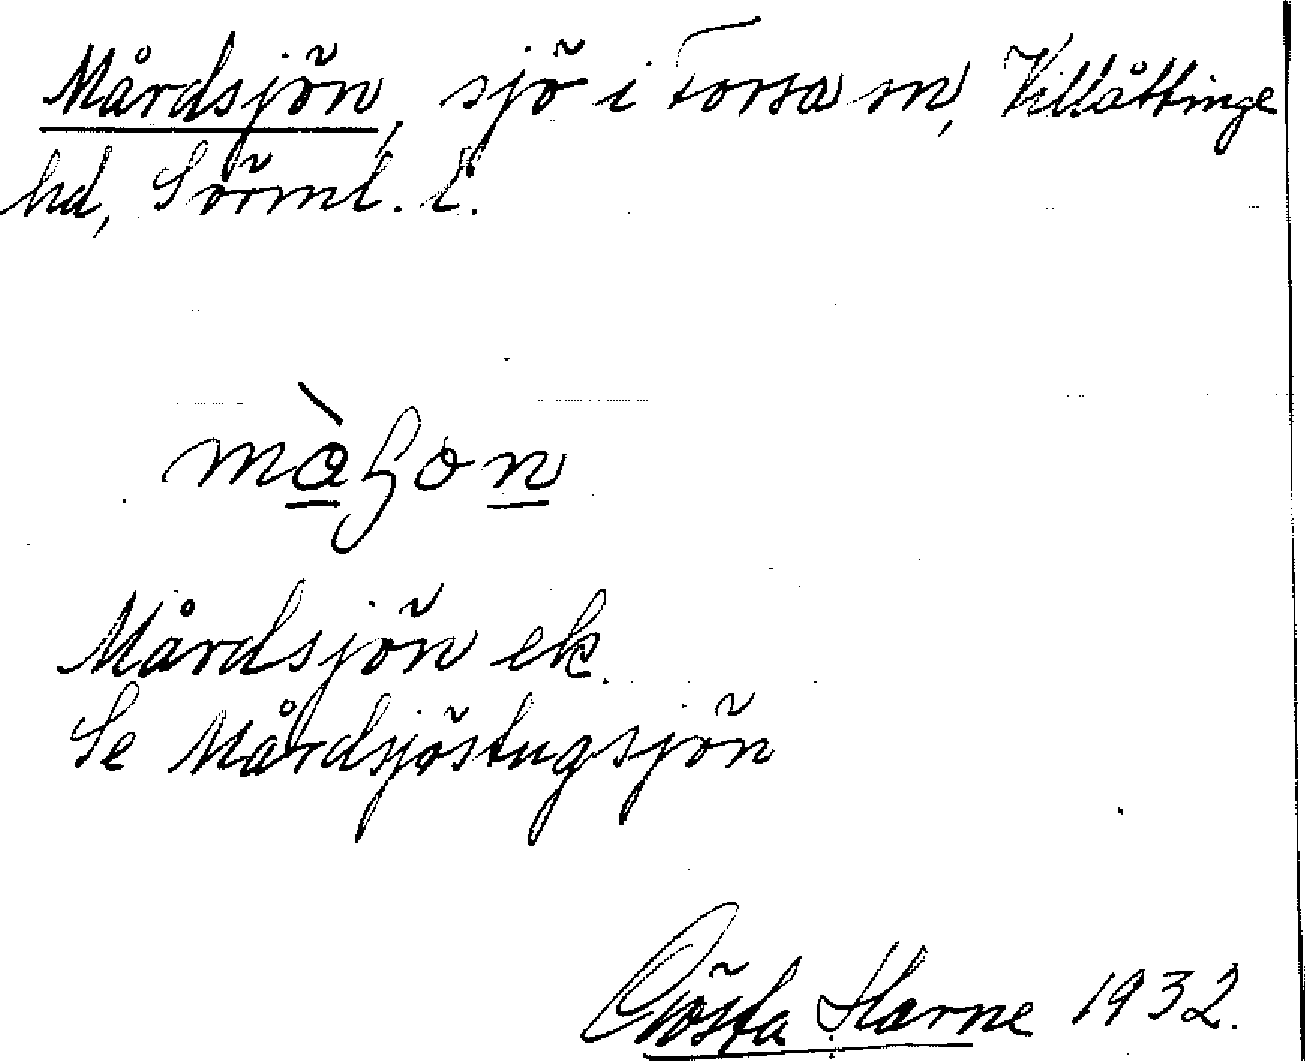 Mårdsjön, sjö i Forsa sn, Villåttinge
hd, Sörml. l.
Mårdsjön ek.
Se Mårdsjöstugsjön
Gösta Harne 1932.